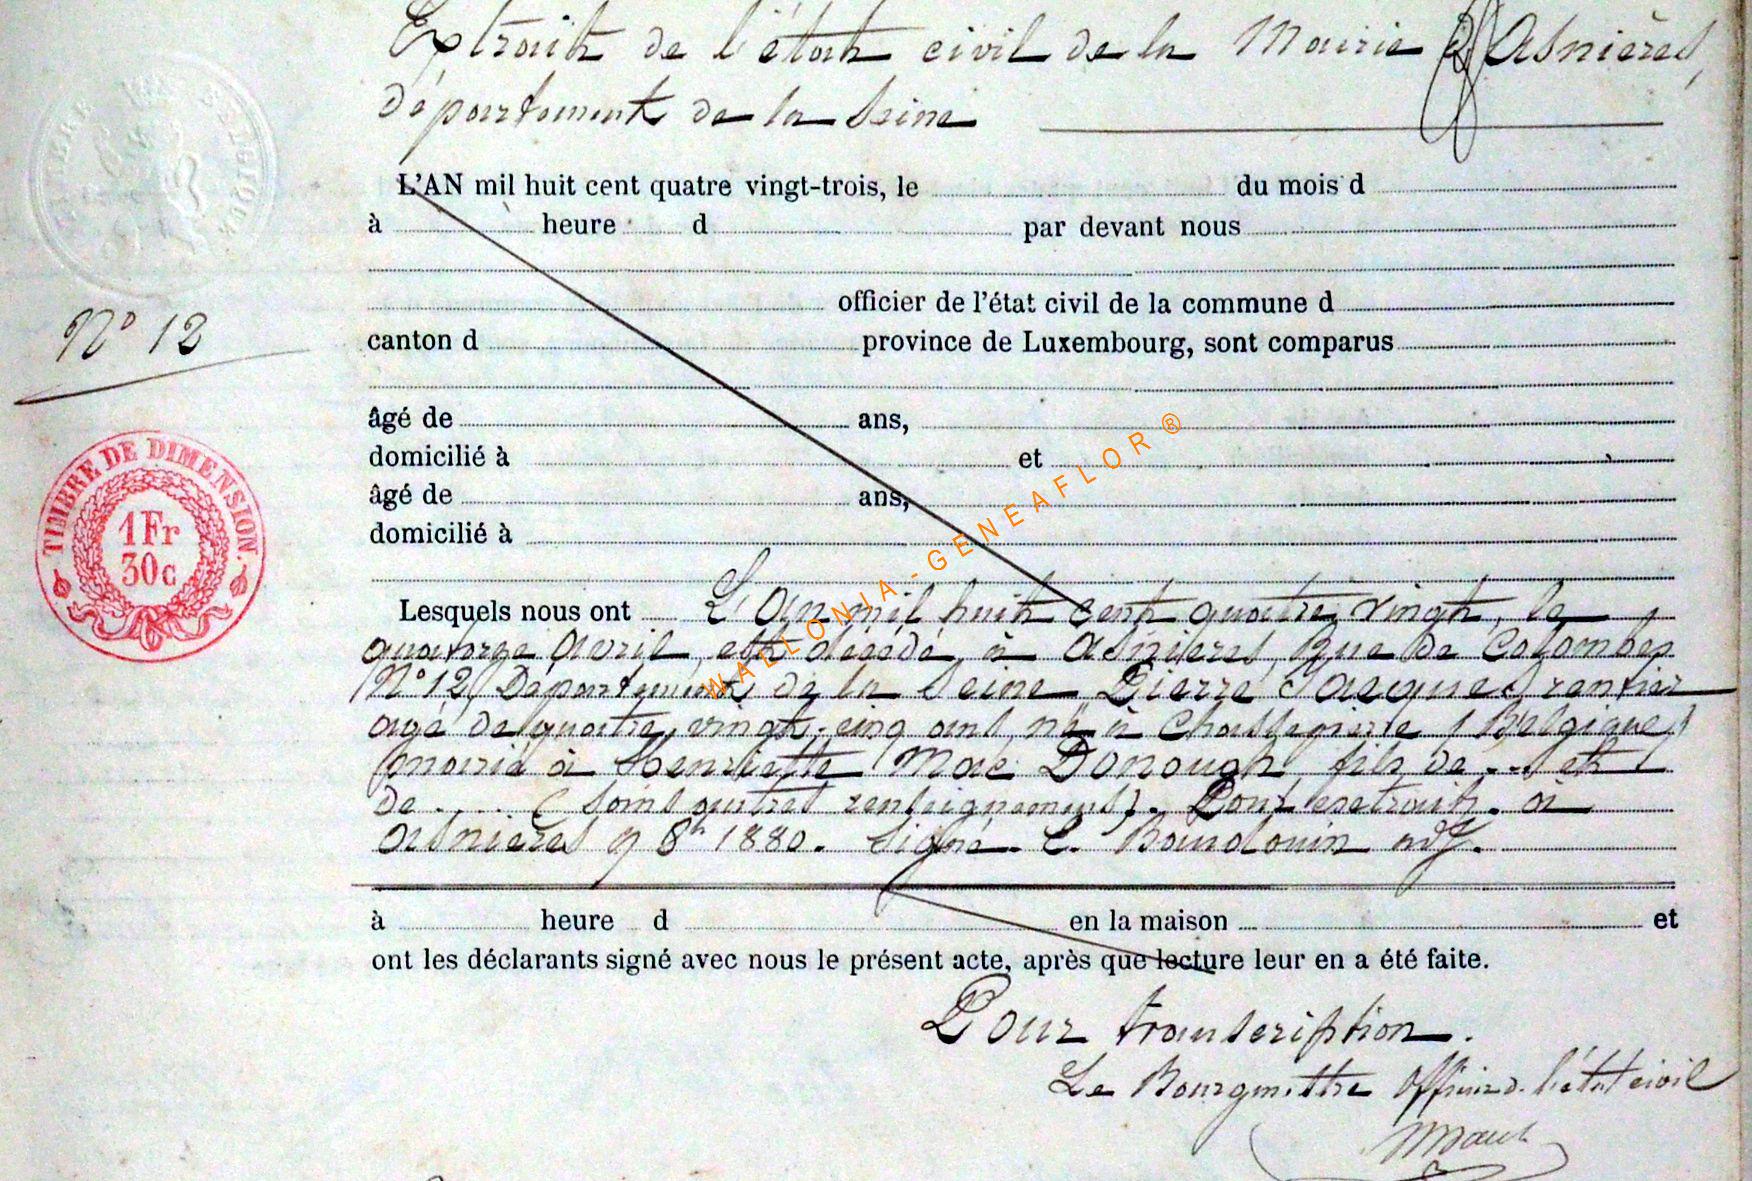 Extrait de l'état civil de la Mairie d'Asnières,
département de la Seine
L'AN mil huit cent quatre vingt-trois, le du mois d
à heure d par devant nous
officier de l'état civil de la commune d
N° 12
canton d province de Luxembourg, sont comparus
âgé de ans,
domicilié à et
âgé de ans,
domicilié à
TIMBRE DE DIMENSION.
1Fr
30c
WALLONIA - GENEAFLOR ®
Lesquels nous ont L'An mil huit cent quatre vingt, le
quatorze Avril, est décédé à Asnières, Rue de Colombes
N° 12, Département de la Seine Pierre Jacques, rentier
agé de quatre vingt-cinq ans né à Chassepierre (Belgique)
marié à Henriette Mac Donough, fils de ... et
de .... (sans autres renseignements). Pour extrait. à
Asnières 9 8bre 1880. Signé. E. Baudouin adj.
à heure d en la maison et
ont les déclarants signé avec nous le présent acte, après que lecture leur en a été faite.
Pour transcription.
Le Bourgmestre Officier d. l'état civil